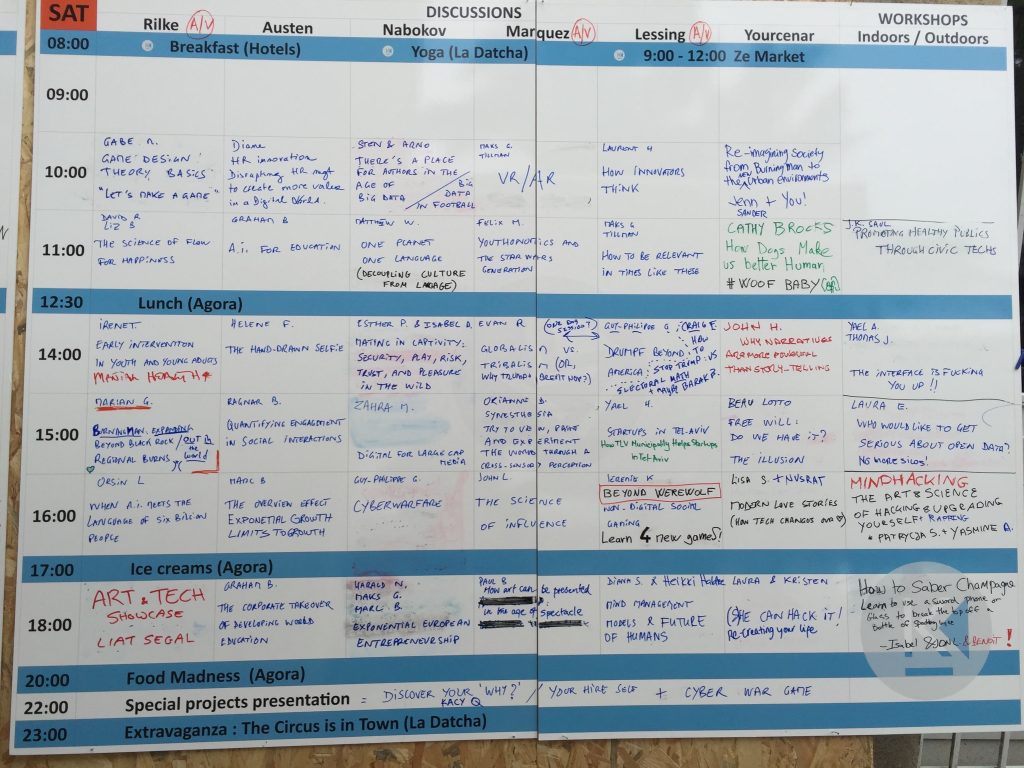 SAT
DISCUSSIONS
WORKSHOPS
Rilke A/V
Austen
Nabokov
Marquez A/V
Lessing A/V
Yourcenar
Indoors / Outdoors
08:00
Breakfast (Hotels)
Yoga (La Datcha)
9:00 - 12:00 Ze Market
09:00
10:00
GABE N.
GAME DESIGN
THEORY BASICS
"LET'S MAKE A GAME"
Diane
HR innovation
Disrupting HR mgt
to create more value
in a Digital World.
STEN & ARNO
THERE'S A PLACE
FOR AUTHORS IN THE
AGE OF
BIG DATA
BIG
DATA
IN FOOTBALL
MAKS G.
TILLMAN
VR/AR
LAURENT H
HOW INNOVATORS
THINK
Re-imagining Society
from Burning Man to
the new Urban environments
Jenn + You!
SANDER
11:00
DAVID R
LIZ B
THE SCIENCE OF FLOW
FOR HAPPINESS
GRAHAM B
A.i. FOR EDUCATION
MATTHEW W.
ONE PLANET
ONE LANGUAGE
(DECOUPLING CULTURE
FROM LANGAGE)
FELIX M.
YOUTHONOMICS AND
THE STAR WARS
GENERATION
MAKS G
TILLMAN
HOW TO BE RELEVANT
IN TIMES LIKE THESE
CATHY BROOKS
How Dogs Make
us better Human
# WOOF BABY
J.K. SAUL
PROMOTING HEALTHY PUBLICS
THROUGH CIVIC TECHS
12:30
Lunch (Agora)
14:00
IRENE T.
EARLY INTERVENTION
IN YOUTH AND YOUNG ADULTS
HELENE F.
THE HAND-DRAWN SELFIE
ESTHER P. & ISABEL D.
MATING IN CAPTIVITY:
SECURITY, PLAY, RISK,
TRUST, AND PLEASURE
IN THE WILD
EVAN R
GLOBALISM VS.
TRIBALISM (OR,
WHY TRUMP & BREXIT NOW?)
GUY-PHILIPPE G
CRAIG E
DRUMPF BEYOND:
AMERICA:
HOW
TO
STOP TRUMP: VS
ELECTORAL MATH
+ MAYBE BARAK P.
JOHN H.
WHY NARRATIVES
ARE MORE POWERFUL
THAN STORY-TELLING
YAEL A.
THOMAS J.
THE INTERFACE IS FUCKING
YOU UP !!
15:00
MARIAN G.
BURNINGMAN. EXPANDING
BEYOND BLACK ROCK / OUT IN
the world
REGIONAL BURNS
RAGNAR B.
QUANTIFYING ENGAGEMENT
IN SOCIAL INTERACTIONS
ZAHRA M.
DIGITAL FOR LARGE CAP
MEDIA
ORIANNE B.
TRY TO VIEW, PAINT
AND EXPERIMENT
THE WORLD THROUGH A
CROSS-SENSORY PERCEPTION
YAEL H.
STARTUPS IN TEL-AVIV
How TLV Municipality Helps Startups
in Tel-Aviv
BEAU LOTTO
FREE WILL:
DO WE HAVE IT?
THE ILLUSION
LAURA E.
WHO WOULD LIKE TO GET
SERIOUS ABOUT OPEN DATA?
NO MORE SILOS!
16:00
ORSIN L
WHEN A.i. MEETS THE
LANGUAGE OF SIX BILLION
PEOPLE
MARC B
THE OVERVIEW EFFECT
EXPONETIAL GROWTH
LIMITS TO GROWTH
GUY-PHILIPPE G.
CYBERWARFARE
JOHN L.
THE SCIENCE
OF INFLUENCE
BEYOND WEREWOLF
NON-DIGITAL SOCIAL
GAMING
Learn 4 new games!
LISA S + NUSRAT
MODERN LOVE STORIES
(HOW TECH CHANGES OUR ♡)
MINDHACKING
THE ART & SCIENCE
OF HACKING & UPGRADING
YOURSELF
PATRYCJA S. + YASMINE A.
17:00
Ice creams (Agora)
18:00
ART & TECH
SHOWCASE
LIAT SEGAL
GRAHAM B.
THE CORPORATE TAKEOVER
OF DEVELOPING WORLD
EDUCATION
HARALD N,
MAKS G.
MARC B
EXPONENTIAL EUROPEAN
ENTREPRENEURSHIP
PAUL B
How art can be presented
in the age of spectacle
DIANA S. & Heikki
MIND MANAGEMENT
MODELS & FUTURE
OF HUMANS
LAURA & KRISTEN
(S)HE CAN HACK IT!
Re-creating your life
HOW to Saber Champagne
Learn to use a sword, phone or
Glass to break the top off a
Bottle
- Isabel
& BENOIT !
20:00
Food Madness (Agora)
22:00
Special projects presentation = DISCOVER YOUR 'WHY?' / YOUR HIRE SELF + CYBER WAR GAME
KACY Q
23:00
Extravaganza : The Circus is in Town (La Datcha)